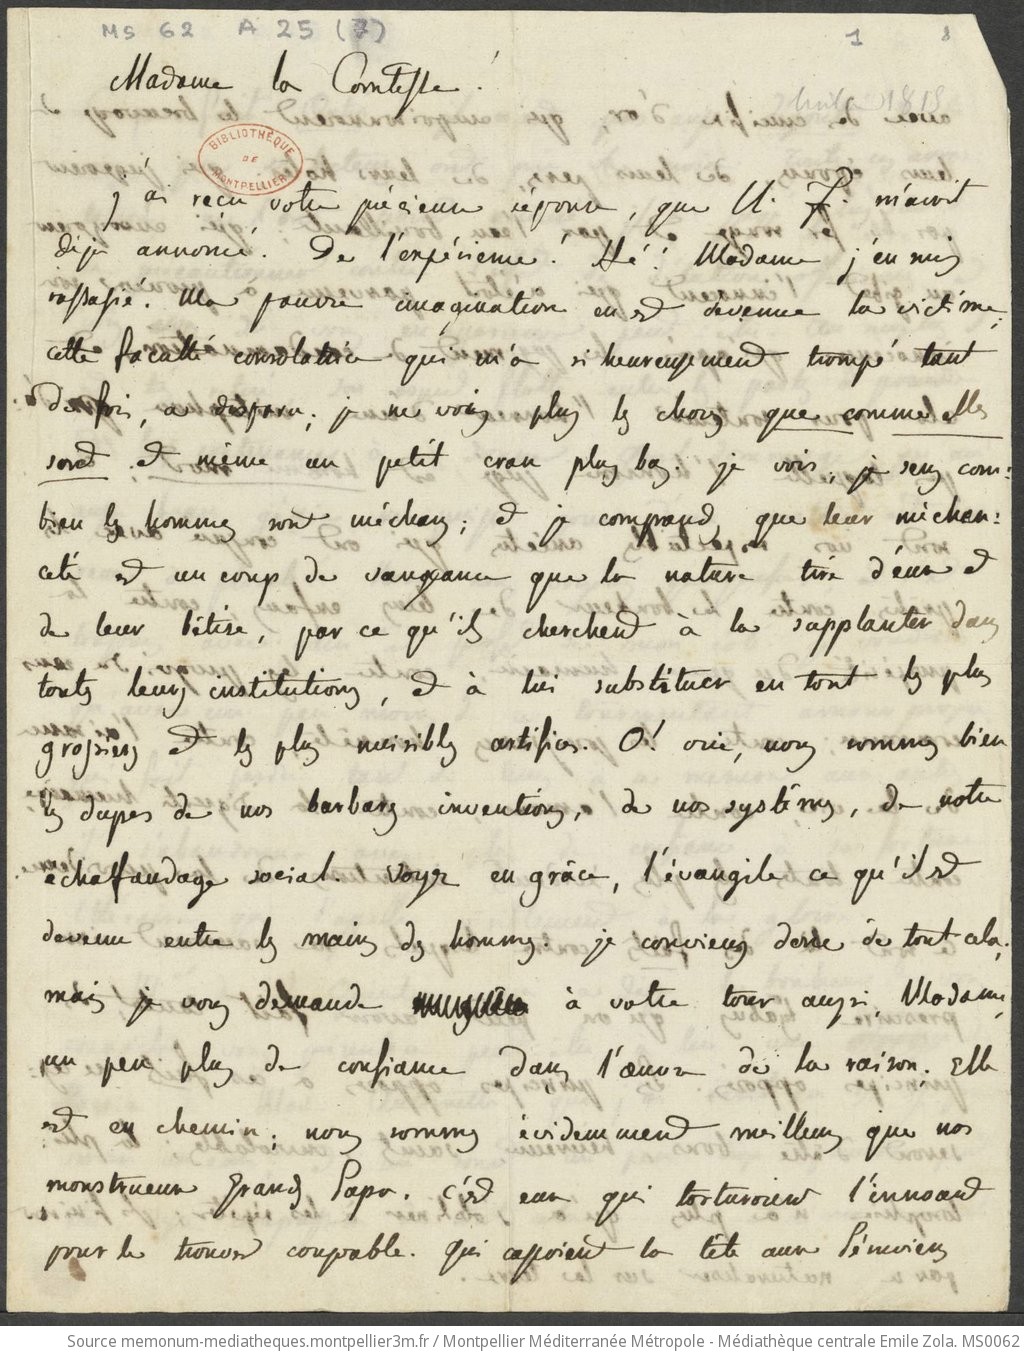 MS 62 A 25 (7)
1
8
Madame la Comtesse!
BIBLIOTHÈQUE
DE
MONTPELLIER
j'ai reçu votre précieuse réponse, que M. F. m'avoit
déja annoncé. De l'expérience! Hé! Madame j'en suis
rassasié. Ma pauvre imagination en est devenue la victime;
cette faculté consolatrice qui m'a si heureusement trompé tant
de fois, a disparu; je ne vois plus les choses que comme elles
sont et même un petit cran plus bas. je vois, je sens com:
bien les hommes sont méchans; et je comprend, que leur méchan:
ceté est un coup de vangeance que la nature tire d'eux et
de leur bétise, par ce qu'ils cherchent à la supplanter dans
touts leurs institutions, et à lui substituer en tout les plus
grossiers et les plus nuisibles artifices. O! oui, nous sommes bien
les dupes de nos barbares inventions, de nos systémes, de notre
échaffaudage social. Voyez en grâce, l'évangile ce qu'il est
devenu entre les mains des hommes. je conviens donc de tout cela;
mais je vous demande à votre tour aussi, Madame,
un peu plus de confiance dans l'œuvre de la raison. Elle
est en chemin; nous sommes évidemment meilleurs que nos
monstrueux grands Papas. c'est eux qui torturoient l'innocent
pour le trouver coupable. qui cassoient la tête aux Péruviens
Source memonum-mediatheques.montpellier3m.fr / Montpellier Méditerranée Métropole - Médiathèque centrale Emile Zola. MS0062